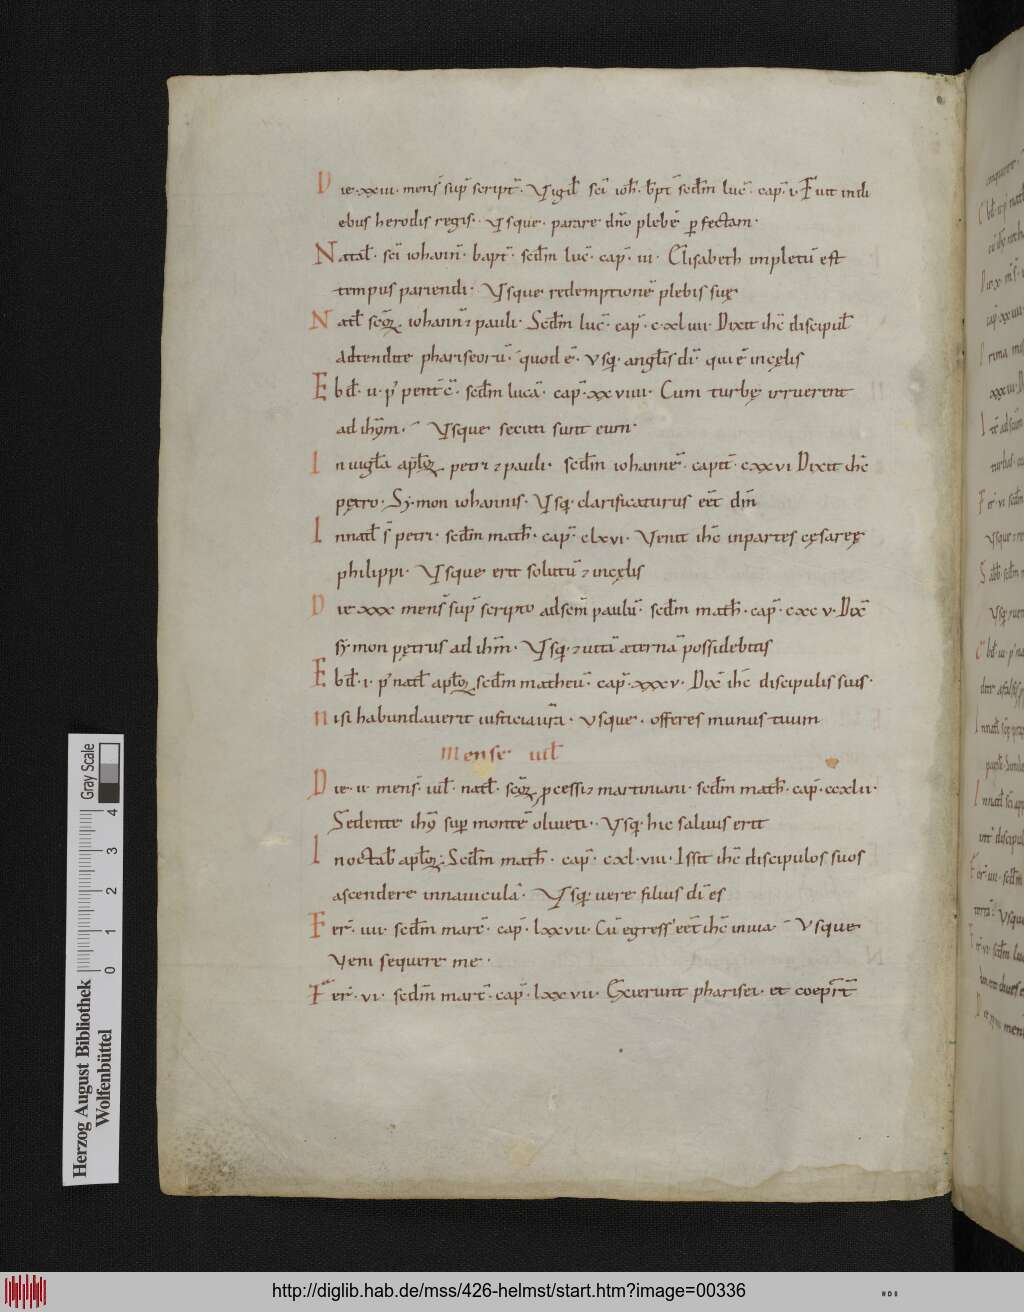 Die·xxiii· mens̄ sup̄ script̄· Vigil̄ sc̄i ioh̄· bpt̄ scd̄m luc̄· cap̄· i· Fuit in di
ebus herodis regis· Vsque· parare dn̄o plebē ꝑfectam·
Natal̄· sc̄i iohann̄· bapt̄· scd̄m luc̄· cap̄· iii· Elisabeth impletū est
tempus pariendi· Vsque redemptionē plebis suę
Natl̄ sc̄oꝝ· iohann̄ ⁊ pauli· Scd̄m luc̄· cap̄· c·xliiii· Dixit ihc̄ discipul̄
adtendite phariseorū· quod ē· vsq· angl̄is dī· qui ē incęlis
Ebd̄· ii· p̄ pent̄c̄· scd̄m lucā· cap̄·xxviiii· Cum turbę irruerent
ad ihm̄· Vsque secuti sunt eum·
In uigl̄a apl̄oꝝ petri ⁊ pauli· scd̄m iohannē· capit̄· cxxvi Dixit ihc̄
pętro· Sy·mon iohannis· Vsq· clarificaturus eēt dm̄
Innatl̄ s̄ petri· scd̄m math̄· cap̄· clxvi· Venit ihc̄ inpartes cęsaręę
philippi· Vsque erit solutū ⁊ incęlis
Die xxx mens̄ sup̄ scripto adscm̄ paulū· scd̄m math̄· cap̄· cxcv· Dix̄
sy·mon pętrus ad ihm̄· Vsq· ⁊ uitā æternā possidebitis
Ebd̄·i· p̄ natl̄ apl̄oꝝ scd̄m matheū· cap̄·xxxv· Dix̄ ihc̄ discipulis suis·
nisi habundauerit iusticia ur̄a· vsque· offeres munus tuum
Mense iul̄
Die·ii· mens̄· iul̄· natl̄· sc̄oꝝ ꝓcessi ⁊ martiniani· scd̄m math̄· cap̄· ccxlii·
Sedente ihū sup̄ montē oliueti· Vsq· hic saluus erit
Inoctab̄ apl̄oꝝ· Scd̄m math̄· cap̄· cxl·viii· Issit ihc̄ discipulos suos
ascendere innauiculā· Vsq· uere filius dī es
Fer̄· iiii· scd̄m marc̄· cap̄· lxxvii· Cū egress' eēt ihc̄ inuia Vsque
Veni sequere me·
Fer̄· vi· scd̄m marc̄· cap̄· lxxvii· Exierunt pharisei· et coepr̄t
Herzog August Bibliothek
Wolfenbüttel
0 1 2 3 4
Gray Scale
http://diglib.hab.de/mss/426-helmst/start.htm?image=00336